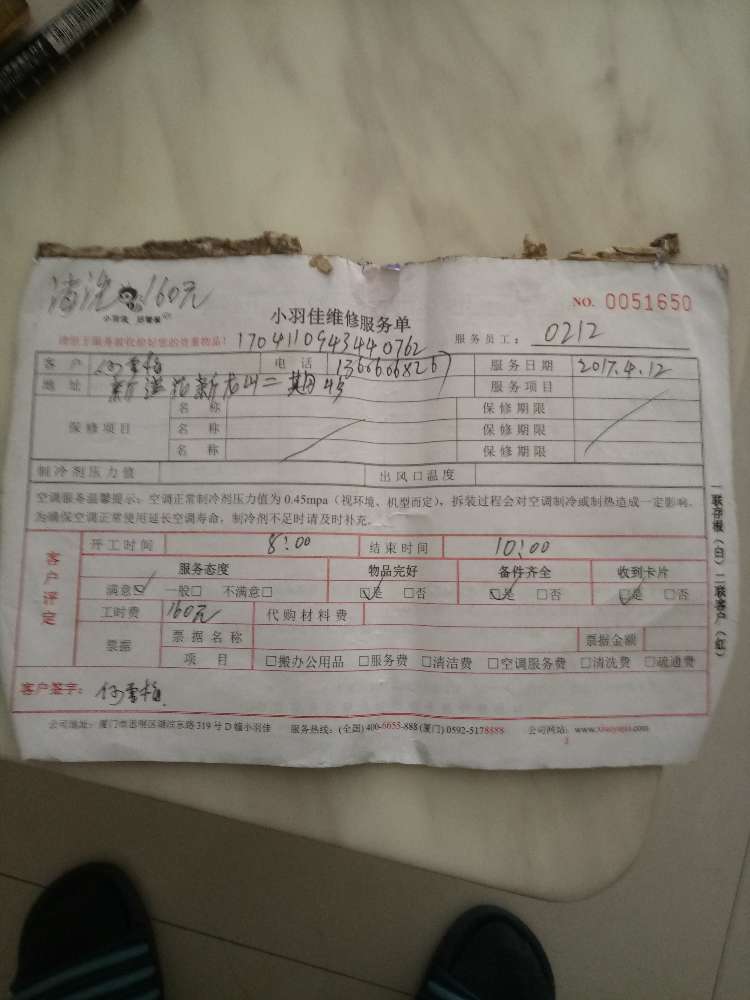 清洗 160元
小羽佳 好管家
小羽佳维修服务单
NO. 0051650
请您于服务前收拾好您的贵重物品!
170411094344 0762
服务员工: 0212
客户 何雪梅 电话 服务日期 2017.4.12
地址 服务项目
保修项目
名称 保修期限
名称 保修期限
名称 保修期限
制冷剂压力值 出风口温度
空调服务温馨提示:空调正常制冷剂压力值为 0.45mpa(视环境、机型而定),拆装过程会对空调制冷或制热造成一定影响,
为确保空调正常使用延长空调寿命,制冷剂不足时请及时补充。
客户评定
开工时间 8:00 结束时间 10:00
服务态度 物品完好 备件齐全 收到卡片
满意☑ 一般□ 不满意□ ☑是 □否 ☑是 □否 ☑是 □否
工时费 160元 代购材料费
票据 票据名称 票据金额
项目 □搬办公用品 □服务费 □清洁费 □空调服务费 □清洗费 □疏通费
客户签字: 何雪梅
公司地址:厦门市思明区湖滨东路 319 号 D 幢小羽佳 服务热线:(全国) 400-6655-888 (厦门) 0592-5178888 公司网站: www.xiaoyujia.com
2
一联存根(白) 二联客户(红)